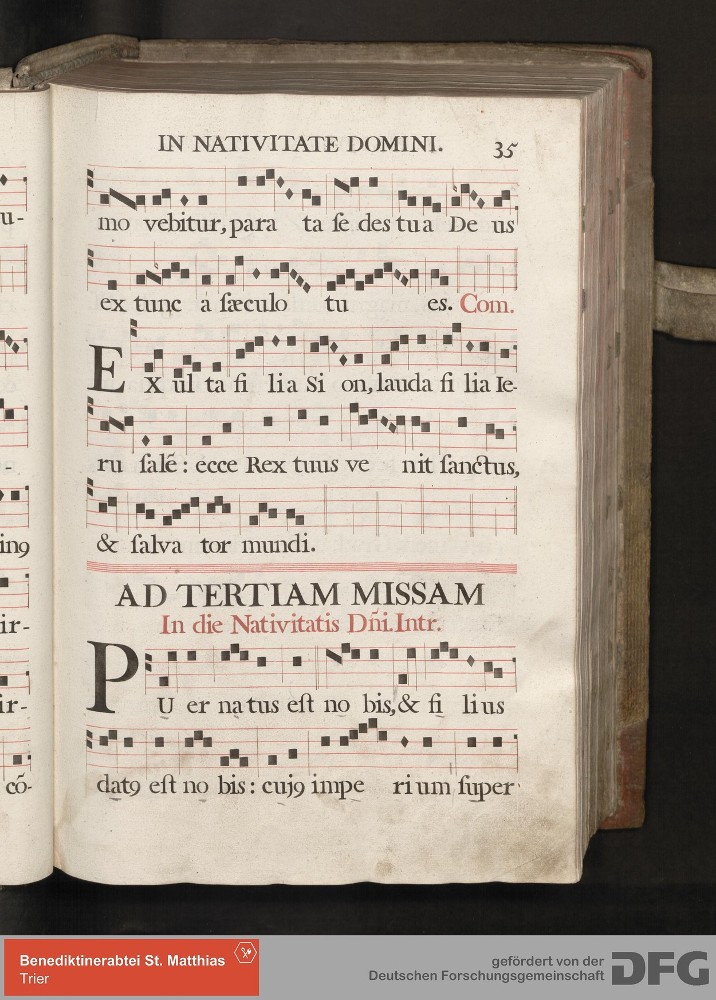 IN NATIVITATE DOMINI. 35
mo vebitur, para ta ſe des tua De us
ex tunc a ſæculo tu es. Com.
EX ul ta fi lia Si on, lauda fi lia Ie-
ru ſalē: ecce Rex tuus ve nit ſanctus,
& ſalva tor mundi.
AD TERTIAM MISSAM
In die Nativitatis Dñi. Intr.
PU er na tus eſt no bis, & fi lius
datꝯ eſt no bis: cujꝯ impe rium ſuper
u-
-
inꝯ
ir-
ir-
cō-
Benediktinerabtei St. Matthias
Trier
gefördert von der
Deutschen Forschungsgemeinschaft
DFG